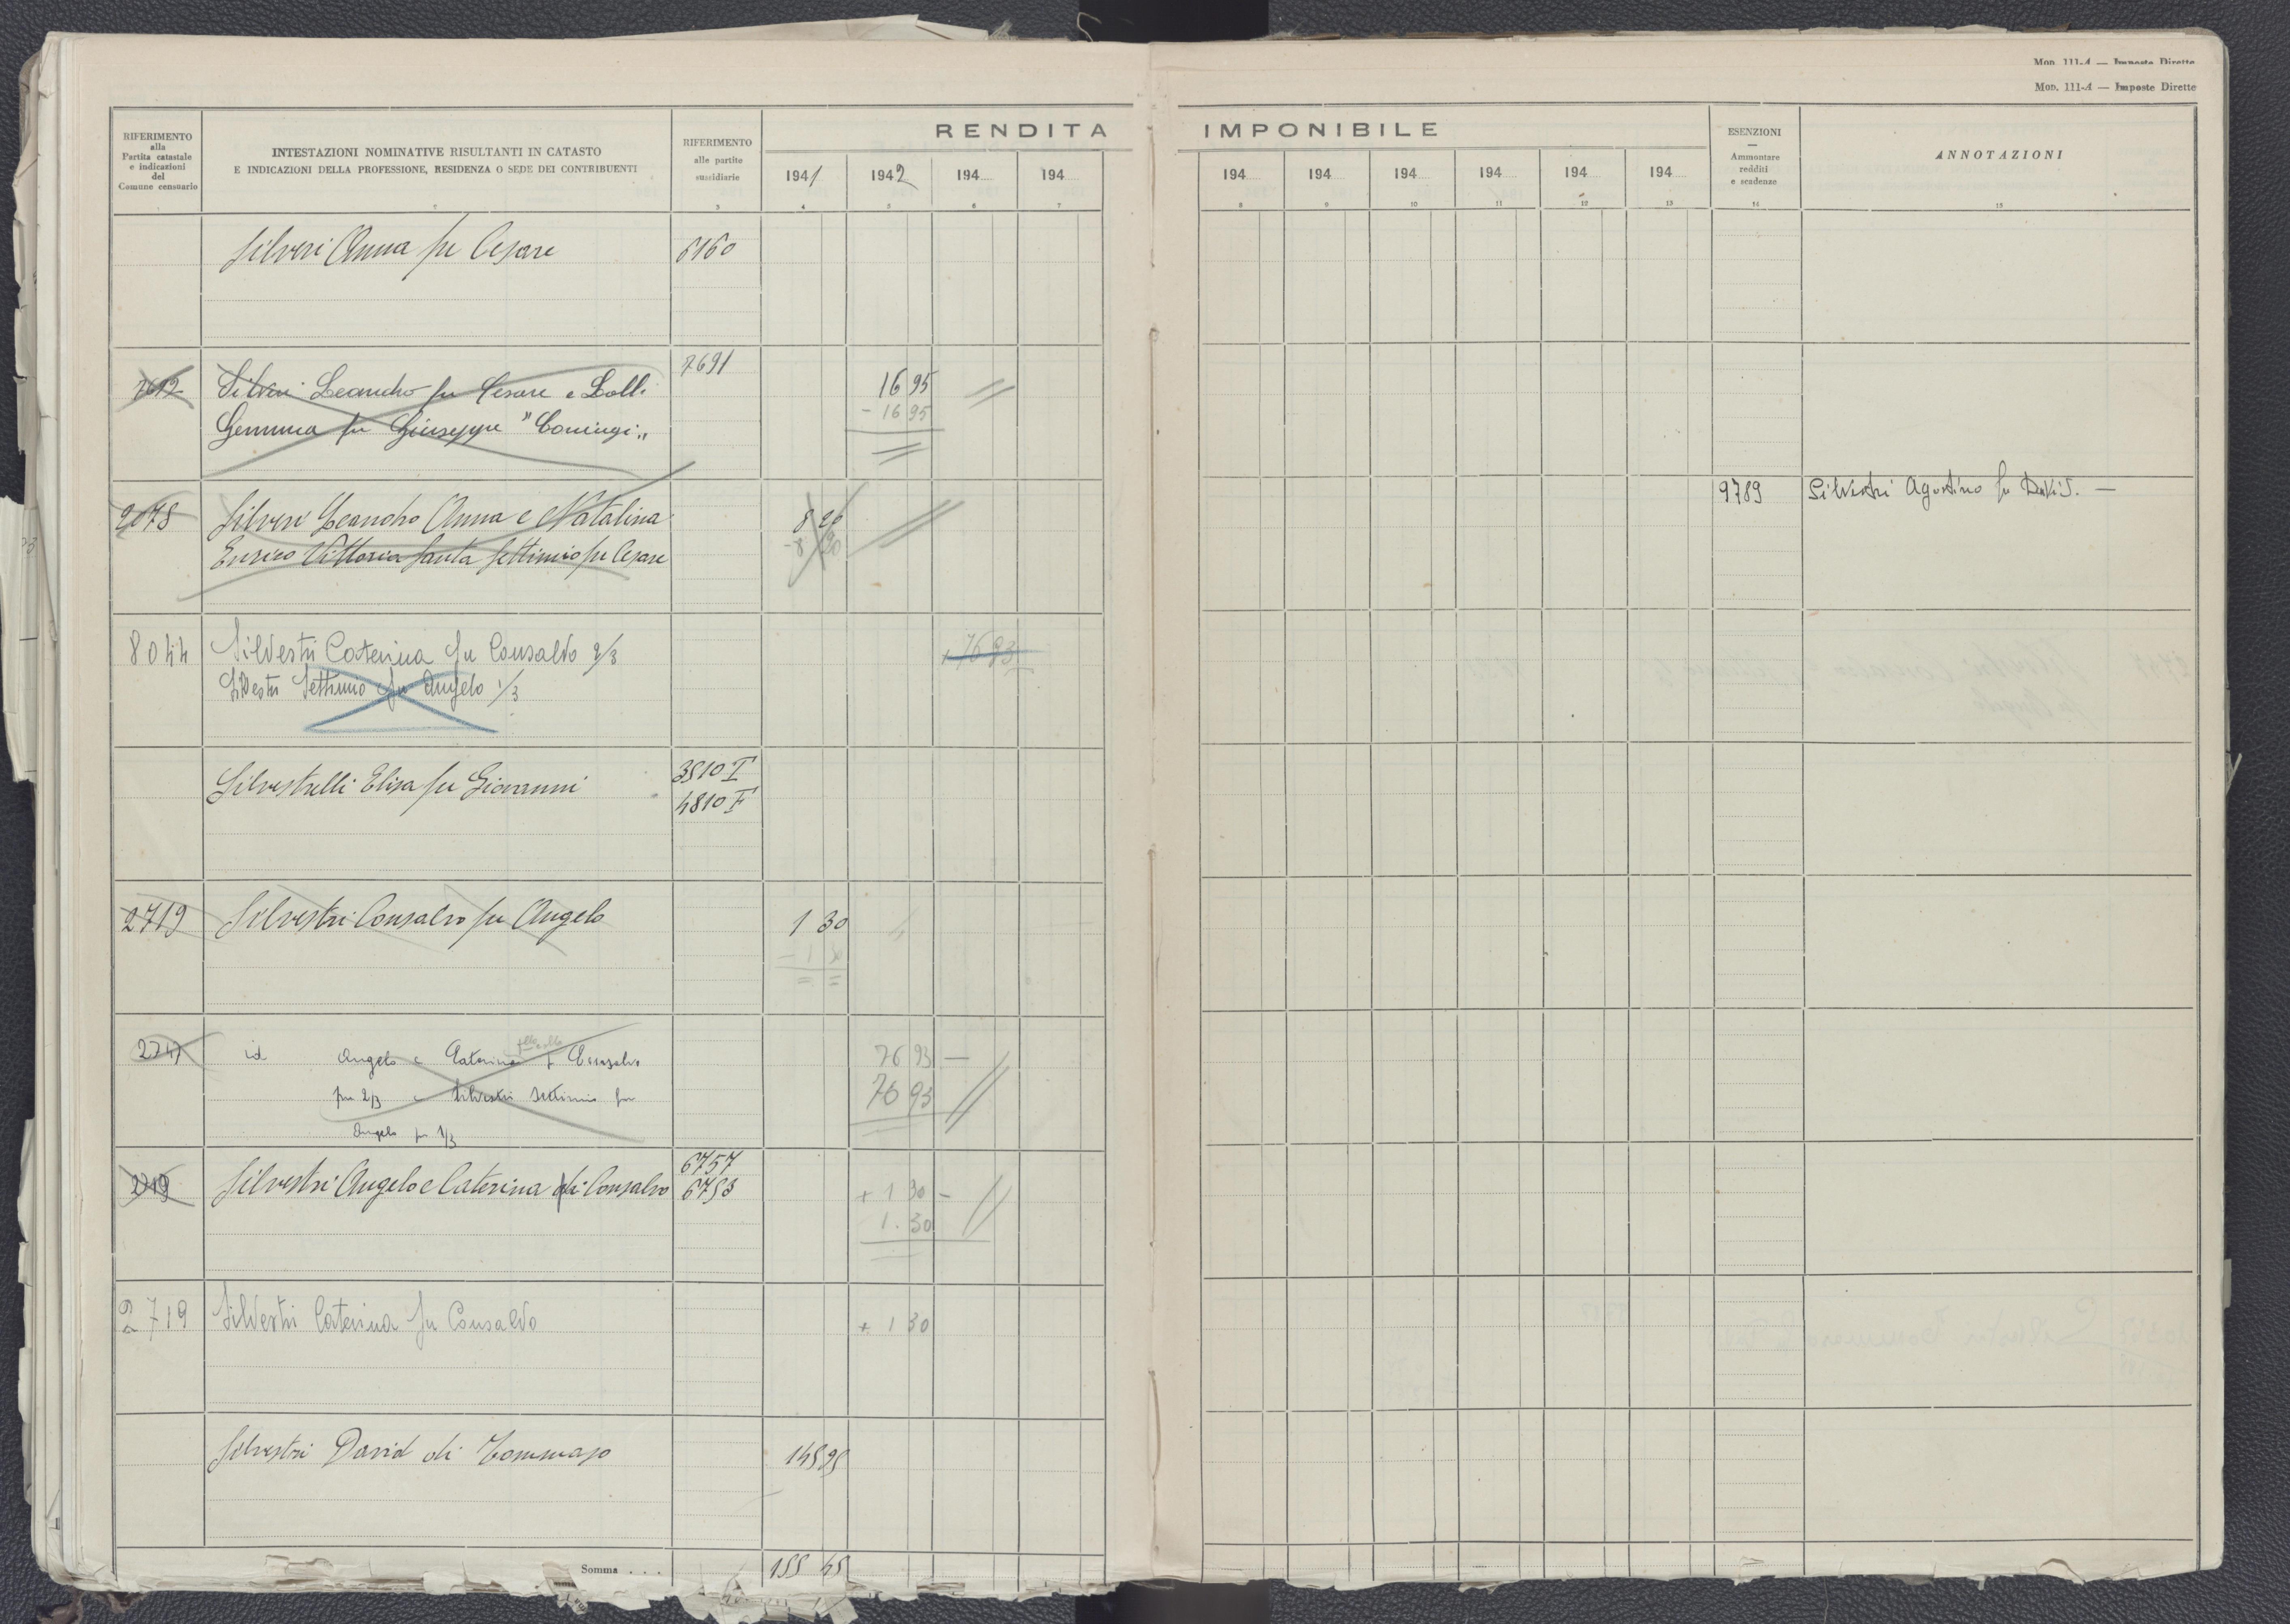 Mod. 111-A — Imposte Dirette
Mod. 111-A — Imposte Dirette
RIFERIMENTO
alla
Partita catastale
e indicazioni
del
Comune censuario
INTESTAZIONI NOMINATIVE RISULTANTI IN CATASTO
E INDICAZIONI DELLA PROFESSIONE, RESIDENZA O SEDE DEI CONTRIBUENTI
RIFERIMENTO
alle partite
sussidiarie
RENDITA IMPONIBILE
1941 1942 194 194 194 194 194 194 194 194
ESENZIONI
—
Ammontare
redditi
e scadenze
ANNOTAZIONI
2 3 4 5 6 7 8 9 10 11 12 13 14 15
Silveri Anna fu Cesare 6160
7691
7692 Silveri Leandro fu Cesare e Lolli 16 95
- 16 95
Gemma fu Giuseppe "Coniugi"
9789 Silvestri Agostino fu David. —
2078 Silveri Leandro Anna e Natalina 8 20
Enrico Vittoria Santa Settimio fu Cesare - 8 20
8044 Silvestri Caterina fu Consalvo 2/3 + 76 93
Silvestri Settimio fu Angelo 1/3
Silvestrelli Elisa fu Giovanni 3810 I
4810 F
2719 Silvestri Consalvo fu Angelo 1 30
- 1 30
2747 id Angelo e Caterina f Consalvo 76 93 —
per 2/3 e Silvestri Settimio fu 76 93
Angelo per 1/3
6757
2719 Silvestri Angelo e Caterina di Consalvo 6793 + 1 30 -
1.30
2719 Silvestri Caterina fu Consalvo + 1 30
Silvestri David di Tommaso 145 95
Somma . . . 155 45